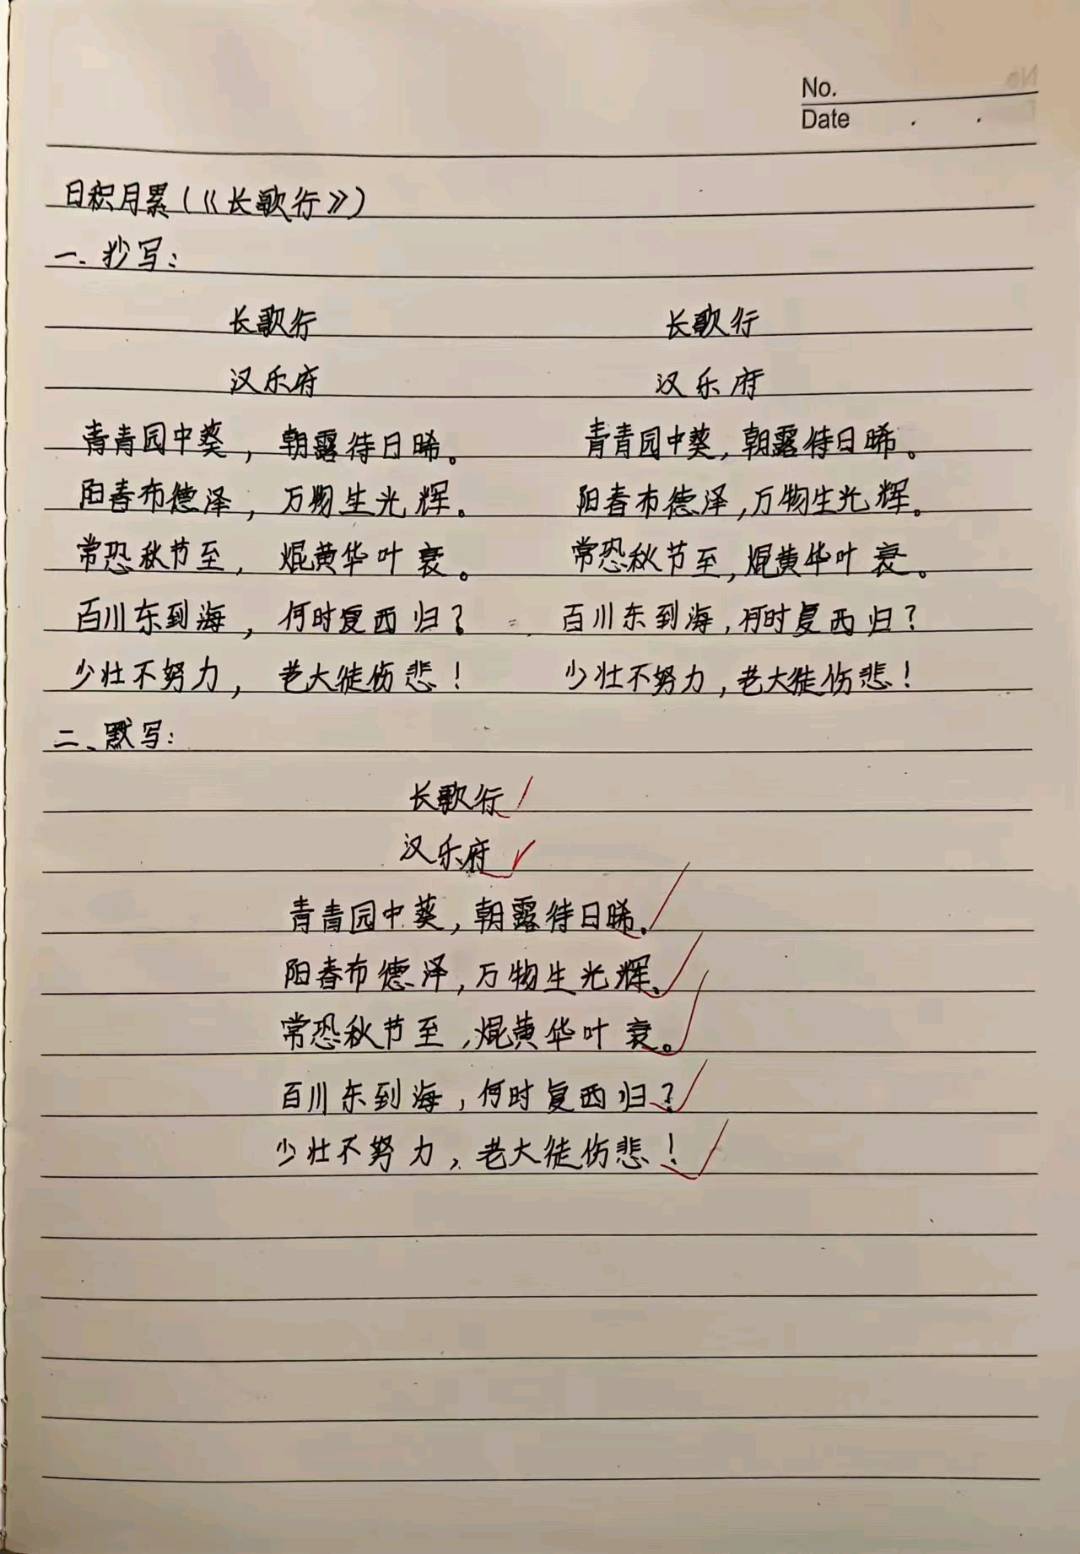 No.
Date
日积月累(《长歌行》)
一、抄写:
长歌行 长歌行
汉乐府 汉乐府
青青园中葵，朝露待日晞。 青青园中葵，朝露待日晞。
阳春布德泽，万物生光辉。 阳春布德泽，万物生光辉。
常恐秋节至，焜黄华叶衰。 常恐秋节至，焜黄华叶衰。
百川东到海，何时复西归？ 百川东到海，何时复西归？
少壮不努力，老大徒伤悲！ 少壮不努力，老大徒伤悲！
二、默写:
长歌行
汉乐府
青青园中葵，朝露待日晞。
阳春布德泽，万物生光辉。
常恐秋节至，焜黄华叶衰。
百川东到海，何时复西归？
少壮不努力，老大徒伤悲！